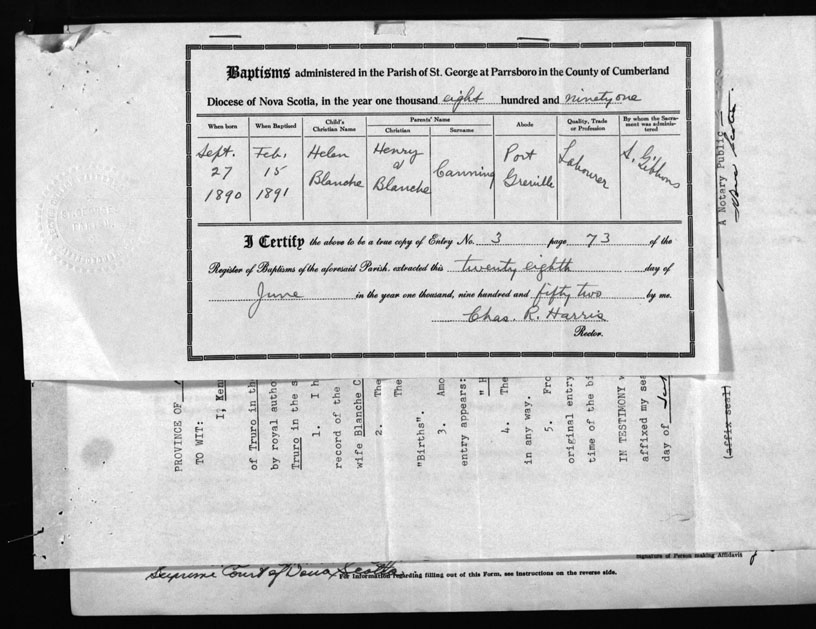 Baptisms administered in the Parish of St. George at Parrsboro in the County of Cumberland
Diocese of Nova Scotia, in the year one thousand eight hundred and ninety one
When born
When Baptised
Child's Christian Name
Parents' Name
Christian
Surname
Abode
Quality, Trade or Profession
By whom the Sacra-
ment was adminis-
tered
Sept.
27
1890
Feb.
15
1891
Helen
Blanche
Henry
&
Blanche
Canning
Port
Greville
Labourer
S. G. Gibbons
I Certify the above to be a true copy of Entry No. 3 page 73 of the
Register of Baptisms of the aforesaid Parish. extracted this twenty eighth day of
June in the year one thousand, nine hundred and fifty two by me.
Chas. R. Harris
Rector.
A Notary Public
Nova Scotia.
PROVINCE OF
TO WIT:
I, Kenn
of Truro in th
by royal autho
Truro in the s
1. I h
record of the
wife Blanche C
2. The
The
"Births".
3. Amo
entry appears:
" H
4. The
in any way.
5. Fro
original entry
time of the bi
IN TESTIMONY w
affixed my sea
day of
(affix seal)
Signature of Person making Affidavit
Supreme Court of Nova Scotia
For Information regarding filling out of this Form, see instructions on the reverse side.